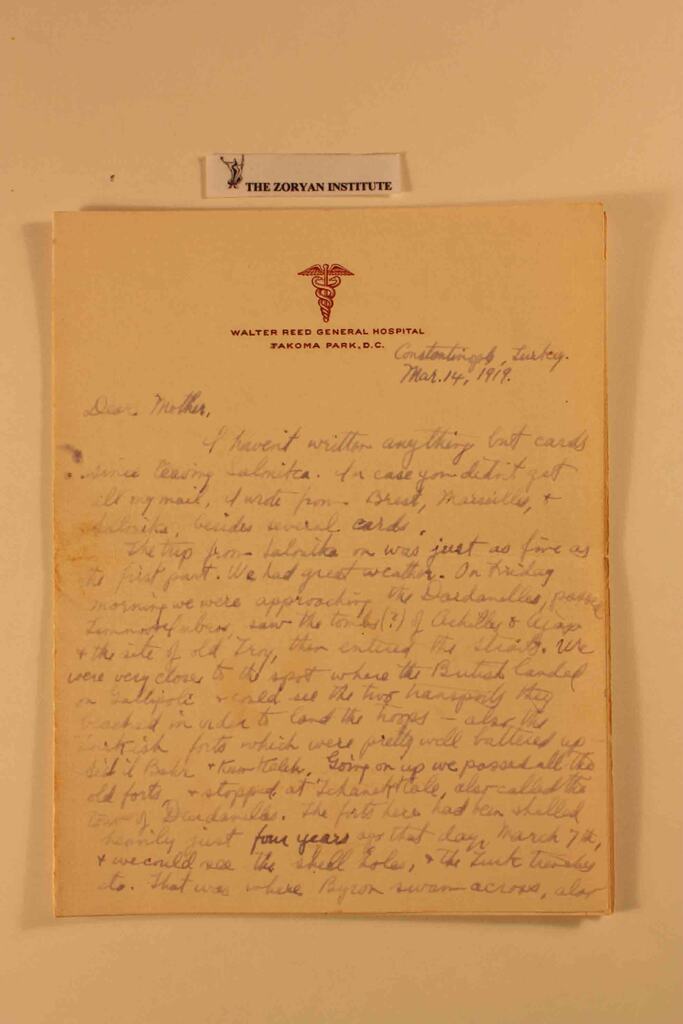 THE ZORYAN INSTITUTE
WALTER REED GENERAL HOSPITAL
TAKOMA PARK, D.C.
Constantinople, Turkey.
Mar. 14, 1919.
Dear Mother,
I haven't written anything but cards
since leaving Salonika. In case you didn't get
all my mail, I wrote from Brest, Marseilles, +
Salonika, besides several cards.
The trip from Salonika on was just as fine as
the first part. We had great weather. On Friday
morning we were approaching the Dardanelles, passed
saw the tombs (?) of Achilles & Ajax
+ the site of old Troy, then entered the straits. We
were very close to the spot where the British landed
on Gallipoli + could see the two transports they
beached in order to land the troops - also the
Turkish forts which were pretty well battered up -
Sed il Bahr + Kum Kaleh. Going on up we passed all the
old forts + stopped at Tchanak Kale, also called the
town of Dardanelles. The forts here had been shelled
heavily just four years ago that day, March 7th,
+ we could see the shell holes, + the Turk trenches
etc. That was where Byron swam across, also